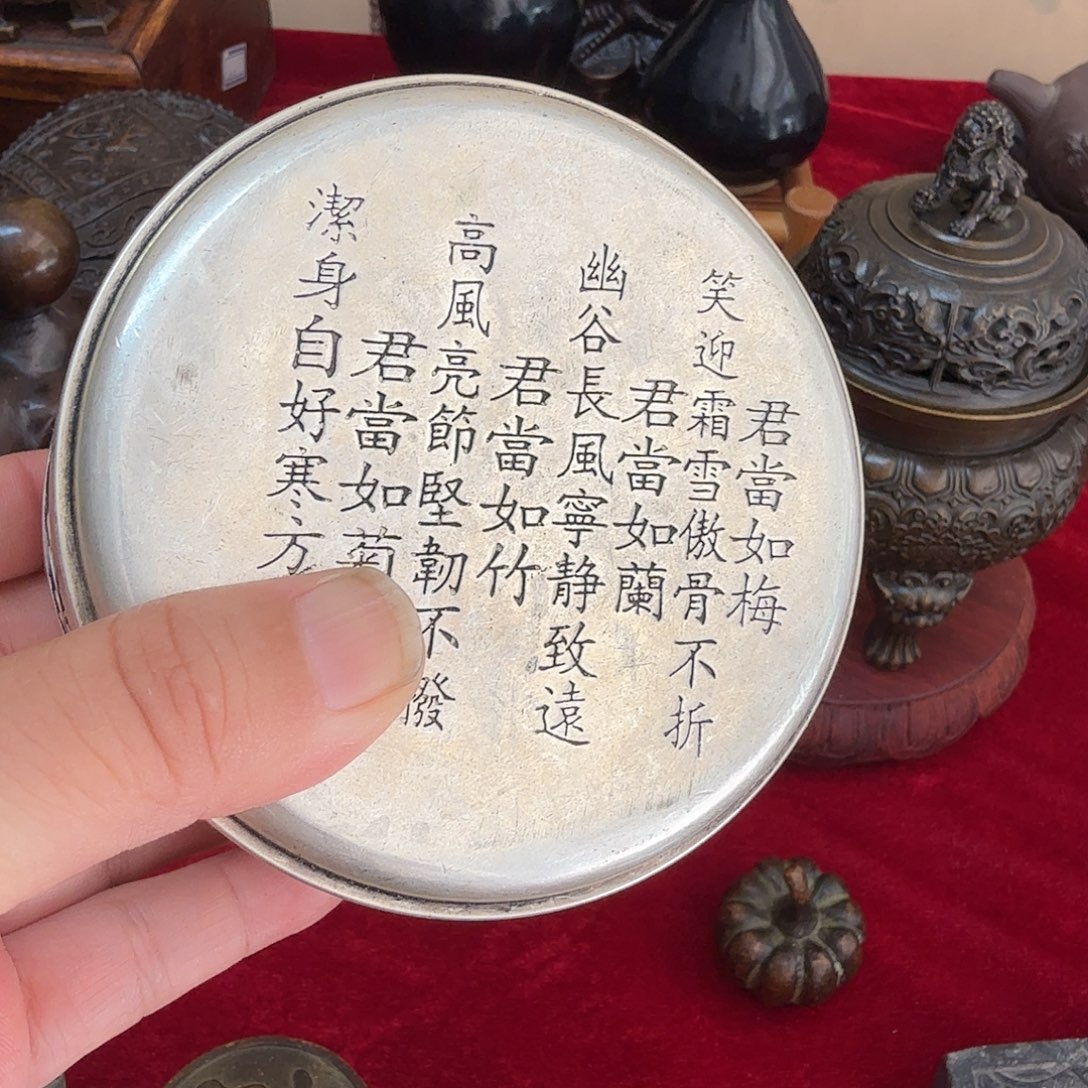 君當如梅
笑迎霜雪傲骨不折
君當如蘭
幽谷長風寧静致遠
君當如竹
高風亮節堅韌不撥
君當如菊
潔身自好寒方